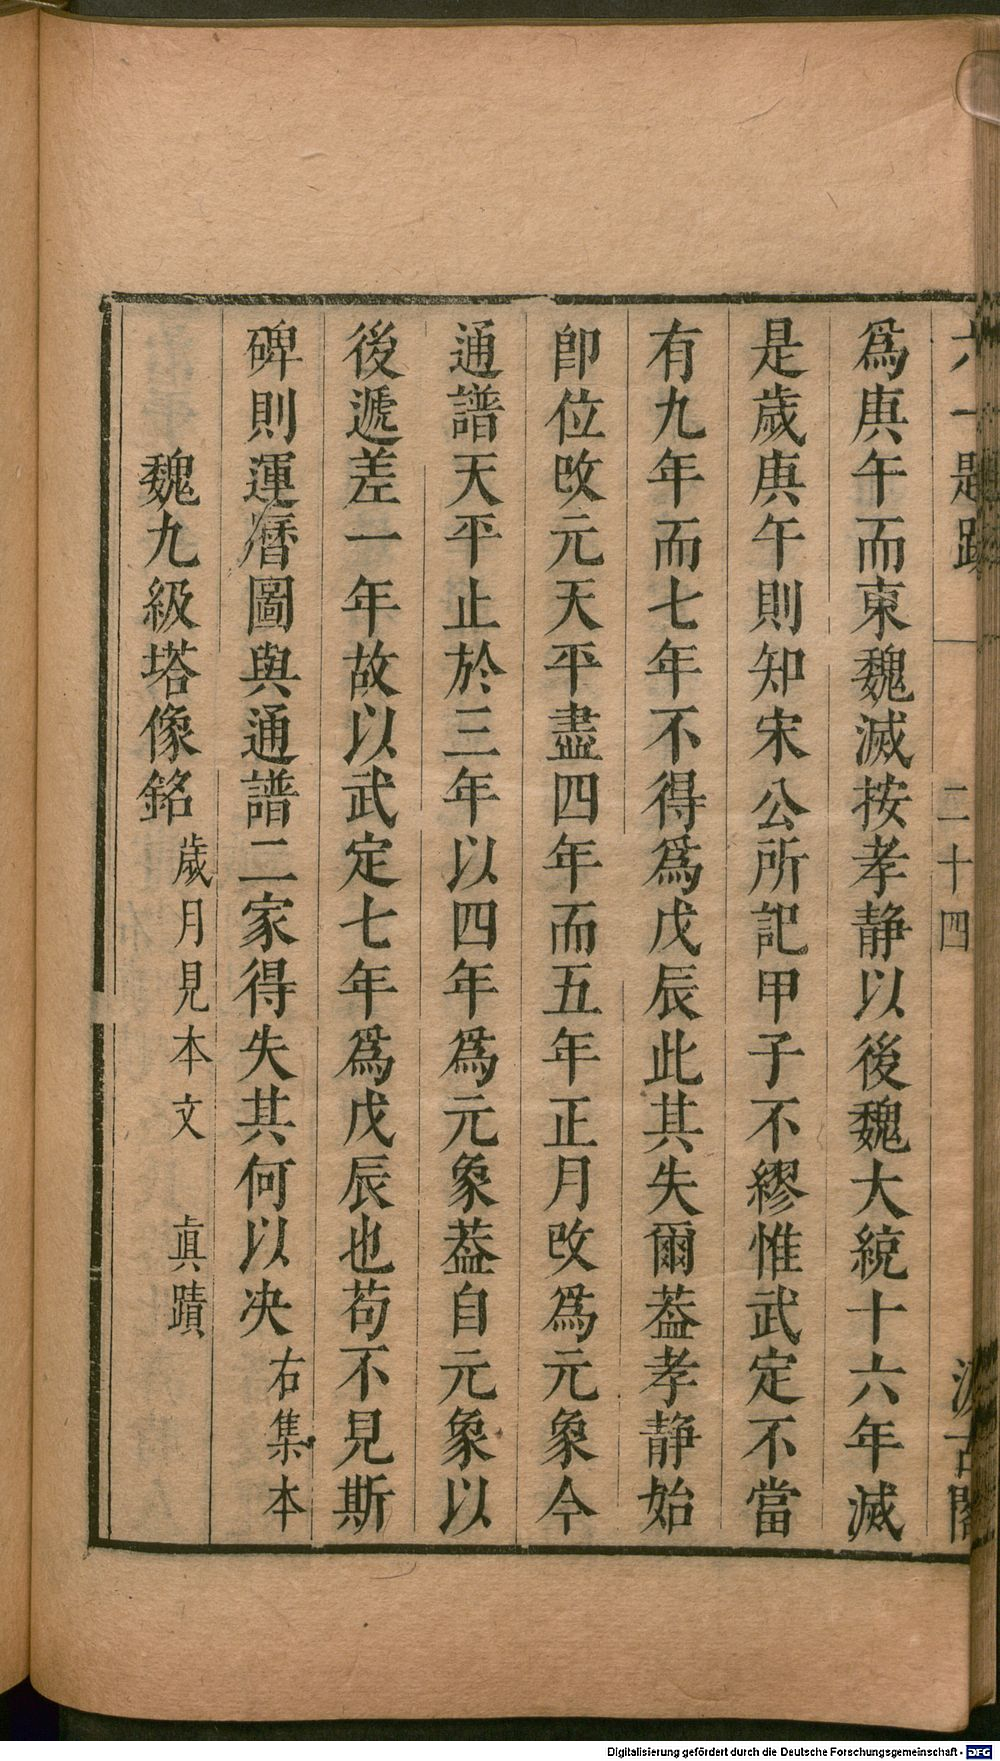 六一題跋 二十四 汲古閣
爲庚午而東魏滅按孝静以後魏大統十六年滅
是歲庚午則知宋公所記甲子不繆惟武定不當
有九年而七年不得爲戊辰此其失爾葢孝静始
卽位改元天平盡四年而五年正月改爲元象今
通譜天平止於三年以四年爲元象葢自元象以
後遞差一年故以武定七年爲戊辰也茍不見斯
碑則運曆圖與通譜二家得失其何以決右集本
魏九級塔像銘歲月見本文 眞蹟
Digitalisierung gefördert durch die Deutsche Forschungsgemeinschaft - DFG